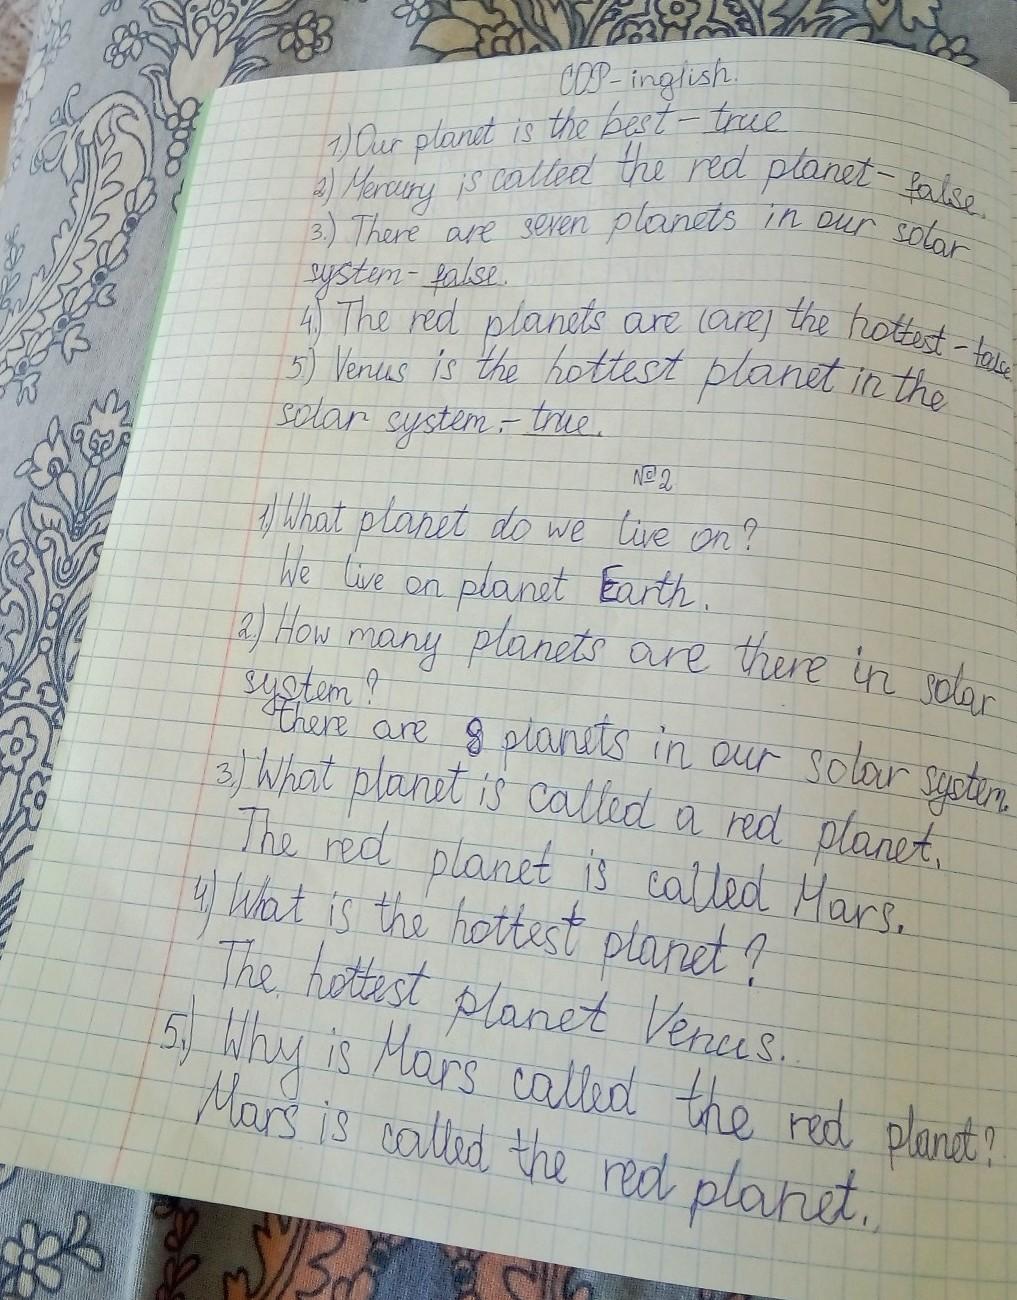 СОР-inglish.
1) Our planet is the best - true
2) Mercury is called the red planet - false.
3.) There are seven planets in our solar
system - false.
4.) The red planets are (are) the hottest - false
5) Venus is the hottest planet in the
solar system. - true.
№2
1) What planet do we live on?
We live on planet Earth.
2) How many planets are there in solar
system?
there are 8 planets in our solar system.
3.) What planet is called a red planet.
The red planet is called Mars.
4.) What is the hottest planet?
The hottest planet Venus.
5.) Why is Mars called the red planet?
Mars is called the red planet.